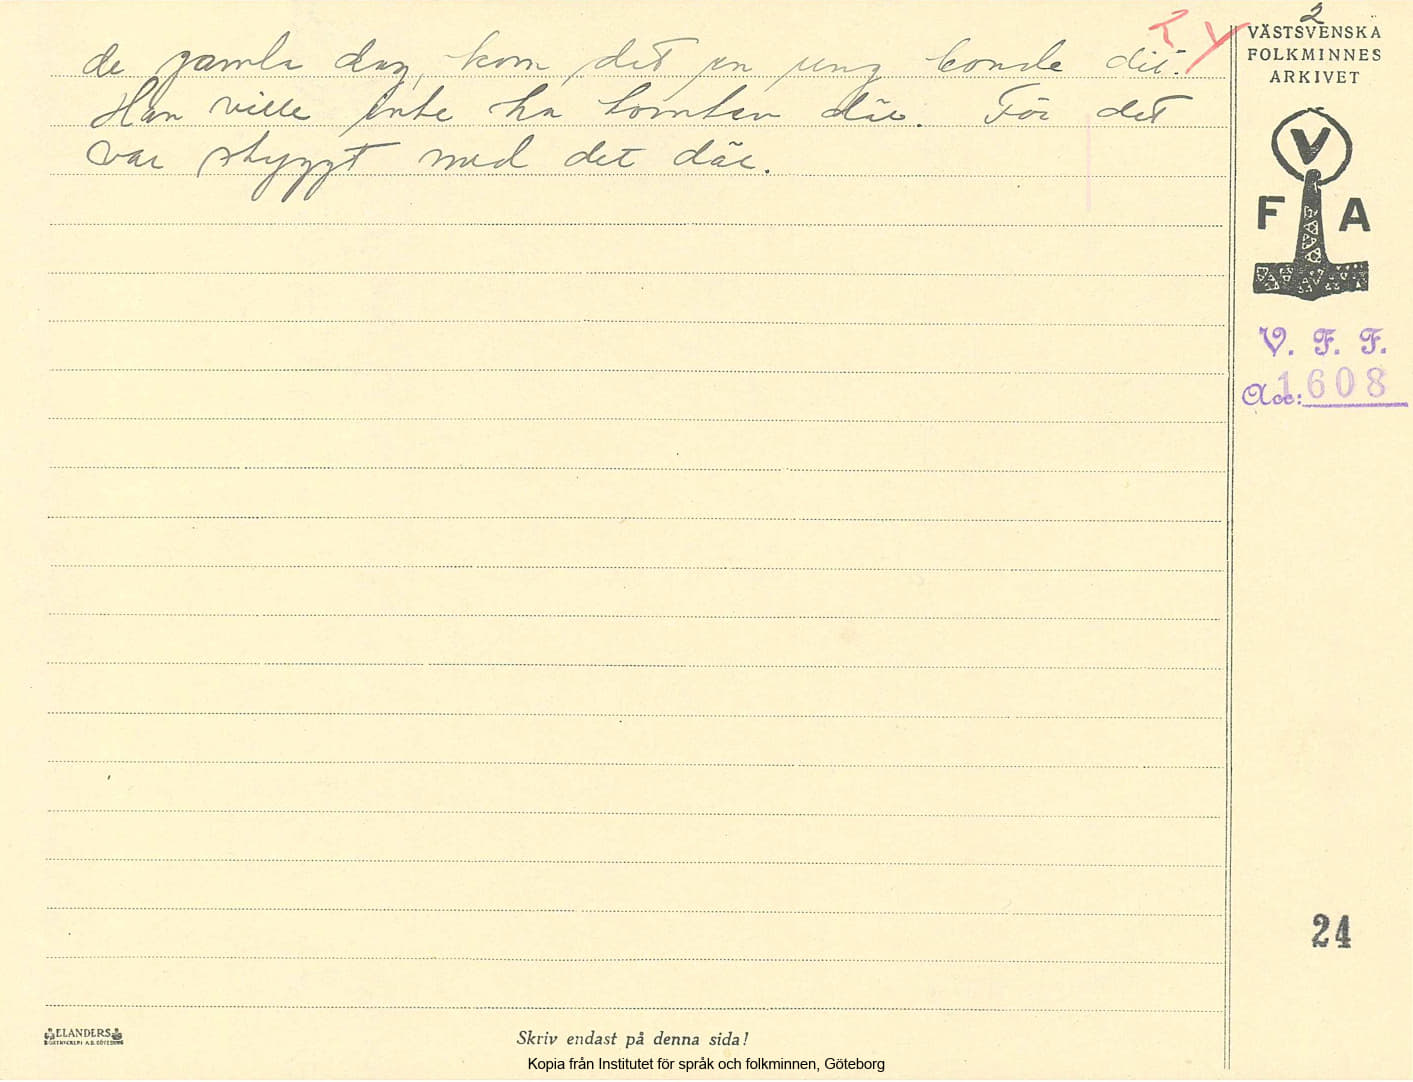 2
de gamla dog, kom det en ung bonde dit.
Han ville inte ha tomten där. För det
var styggt med det där.
VÄSTSVENSKA
FOLKMINNES
ARKIVET
V
F A
V. F. F.
Acc: 1608
24
ELANDERS
BOKTRYCKERI A.B. GÖTEBORG
Skriv endast på denna sida!
Kopia från Institutet för språk och folkminnen, Göteborg